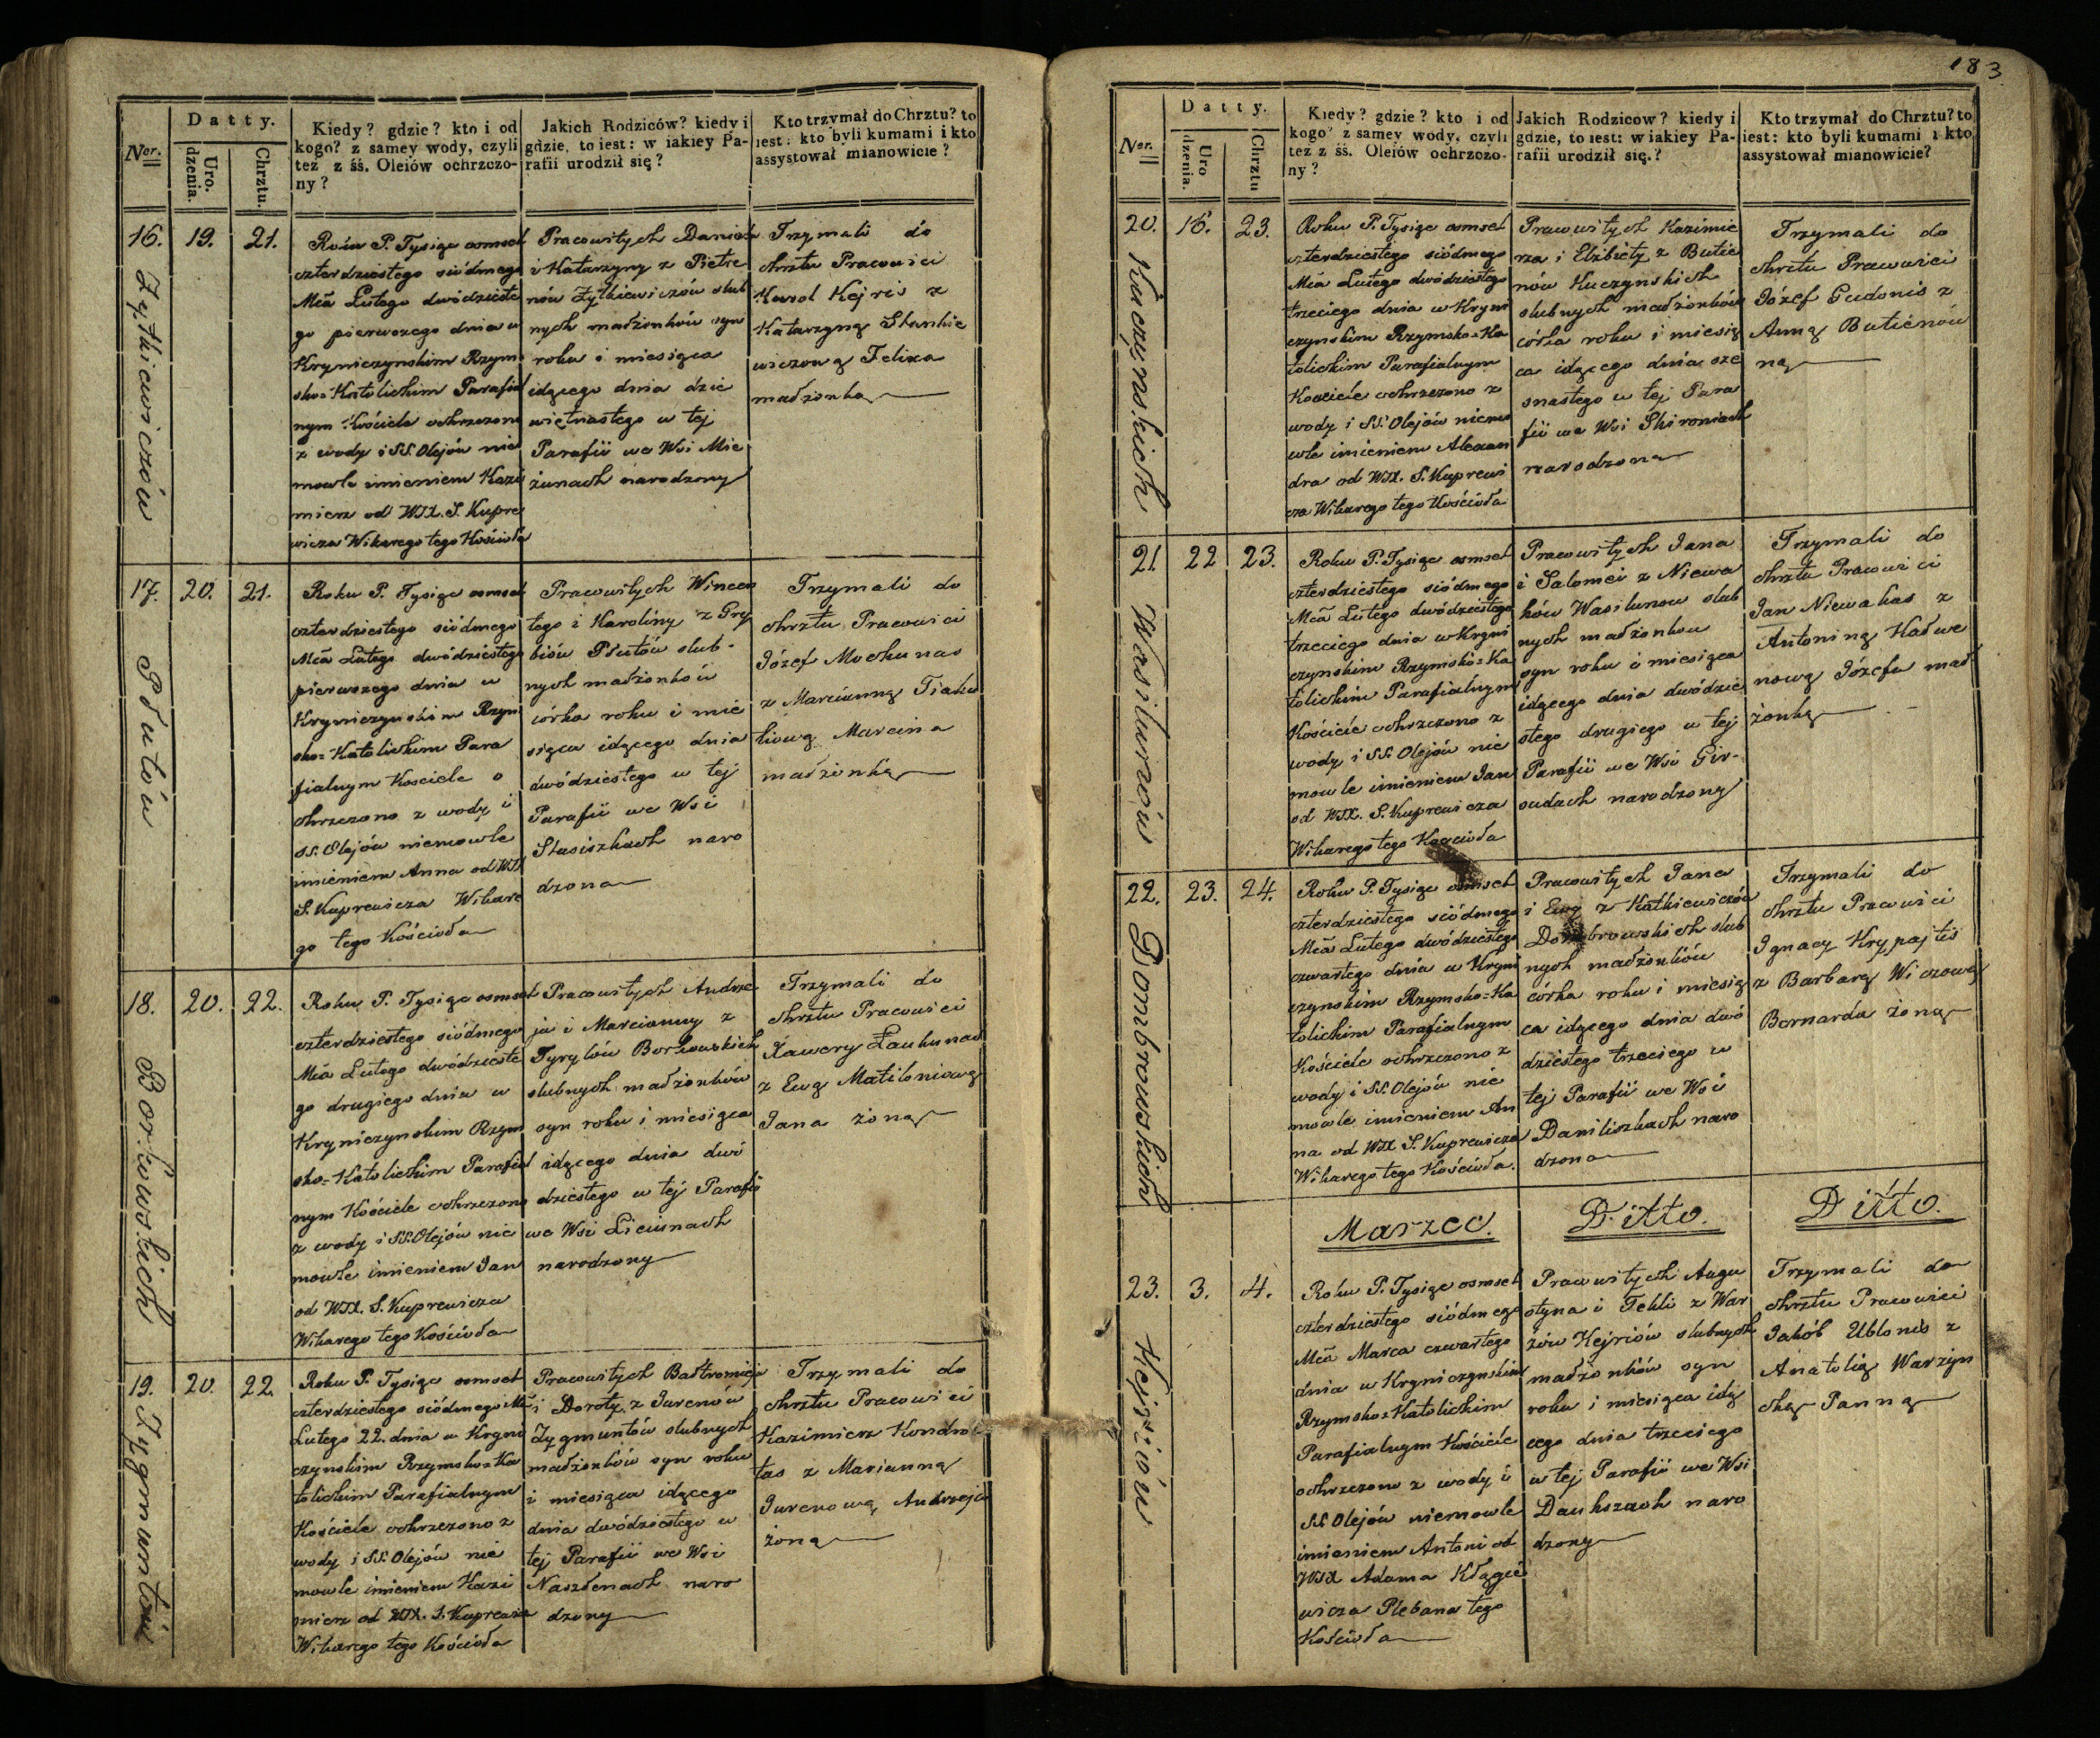 183
Ner.
Datty.
Uro. dzenia.
Chrztu.
Kiedy? gdzie? kto i od
kogo? z samey wody, czyli
też z śś. Oleiów ochrzczo-
ny?
Jakich Rodziców? kiedy i
gdzie, to iest: w iakiey Pa-
rafii urodził się?
Kto trzymał do Chrztu? to
iest: kto byli kumami i kto
assystował mianowicie?
16.
19.
21.
Żytkiewiczów
Roku P. Tysiąc osmset
czterdziestego siódmego
Mca Lutego dwódzieste
go pierwszego dnia w
Krywiczynskim Rzym
sko-Katolickim Parafial
nym Kościele ochrzczono
z wody i SS. Olejów nie
mowle imieniem Kazi
mierz od WJX. S. Kupre
wicza Wikarego tego Kościoła
Pracowitych Daniela
i Katarzyny z Pietre
nów Żytkiewiczów slub
nych małżonków syn
roku i miesiąca
idącego dnia dzie
więtnastego w tej
Parafii we Wsi Mie
żunach narodzony
Trzymali do
chrztu Pracowici
Karol Kejris z
Katarzyną Stankie
wiczową Felixa
małżonką
17.
20.
21.
Płutów
Roku P. Tysiąc osmset
czterdziestego siódmego
Mca Lutego dwódziestego
pierwszego dnia w
Krywiczynskim Rzym
sko-Katolickim Para
fialnym Kosciele o
chrzczono z wody i
SS. Olejów niemowle
imieniem Anna od WJX
S. Kuprewicza Wikare
go tego Kościoła
Pracowitych Wincen
tego i Karoliny z Gry
bów Płutów slub-
nych małżonków
córka roku i mie
siąca idącego dnia
dwódziestego w tej
Parafii we Wsi
Stasiszkach naro
dzona
Trzymali do
chrztu Pracowici
Józef Mockunas
z Marcianną
Marcina
małżonką
18.
20.
22.
Borkowskich
Roku P. Tysiąc osmset
czterdziestego siódmego
Mca Lutego dwódzieste
go drugiego dnia w
Krywiczynskim Rzym
sko-Katolickim Parafial
nym Kościele ochrzczono
z wody i SS. Olejów nie
mowle imieniem Jan
od WJX. S. Kuprewicza
Wikarego tego Kościoła
Pracowitych Andrze
ja i Marcianny z
Tyrylów Borkowskich
slubnych małżonków
syn roku i miesiąca
idącego dnia dwó
dziestego w tej Parafii
we Wsi Liciunach
narodzony
Trzymali do
chrztu Pracowici
Xawery Łaukunas
z Ewą Matiloniową
Jana żoną
19.
20.
22.
Zygmuntów
Roku P. Tysiąc osmset
czterdziestego siódmego Mca
Lutego 22. dnia w Krywi
czynskim Rzymsko-Ka
tolickim Parafialnym
Kościele ochrzczono z
wody i SS. Olejów nie
mowle imieniem Kazi
mierz od WJX. S. Kuprewicza
Wikarego tego Kościoła
Pracowitych Bałtromieja
i Doroty z Jurenów
Zygmuntów slubnych
małżonków syn roku
i miesiąca idącego
dnia dwódziestego w
tej Parafii we Wsi
Naszłenach naro
dzony
Trzymali do
chrztu Pracowici
Kazimierz Kondra
tas z Marianną
Jurenową Andrzeja
żoną
Ner.
Datty.
Uro dzenia.
Chrztu
Kiedy? gdzie? kto i od
kogo? z samey wody, czyli
też z śś. Oleiów ochrzczo-
ny?
Jakich Rodziców? kiedy i
gdzie, to iest: w iakiey Pa-
rafii urodził się.?
Kto trzymał do Chrztu? to
iest: kto byli kumami i kto
assystował mianowicie?
20.
16.
23.
Kuczynskich
Roku P. Tysiąc osmset
czterdziestego siódmego
Mca Lutego dwódziestego
trzeciego dnia w Krywi
czynskim Rzymsko-Ka
tolickim Parafialnym
Kosciele ochrzczono z
wody i SS. Olejów niemo
wle imieniem Alexan
dra od WJX. S. Kuprewi
cza Wikarego tego Kościoła
Pracowitych Kazimie
rza i Elzbiety z Butie
nów Kuczynskich
slubnych małżonków
córka roku i miesią
ca idącego dnia sze
snastego w tej Para
fii we Wsi Skironiach
narodzona
Trzymali do
chrztu Pracowici
Józef Gudonis z
Anną Butienów
ną
21.
22
23.
Wasilunów
Roku P. Tysiąc osmset
czterdziestego siódmego
Mca Lutego dwódziestego
trzeciego dnia w Krywi
czynskim Rzymsko-Ka
tolickim Parafialnym
Kościele ochrzczono z
wody i SS. Olejów nie
mowle imieniem Jan
od WJX. S. Kuprewicza
Wikarego tego Kościoła
Pracowitych Jana
i Salomei z Niewa
ków Wasilunow slub
nych małżonkow
syn roku i miesiąca
idącego dnia dwódzie
stego drugiego w tej
Parafii we Wsi Gir-
sudach narodzony
Trzymali do
chrztu Pracowici
Jan Niewakas z
Antoniną Kałwe
nową Józefa mał
żonką
22.
23.
24.
Dombrowskich
Roku P. Tysiąc osmset
czterdziestego siódmego
Mca Lutego dwódziestego
czwartego dnia w Krywi
czynskim Rzymsko-Ka
tolickim Parafialnym
Kościele ochrzczono z
wody i SS. Olejów nie
mowle imieniem An
na od WJX S. Kuprewicza
Wikarego tego Kościoła.
Pracowitych Jana
i Ewy z Katkiewiczów
Dombrowskich slub
nych małżonków
córka roku i miesią
ca idącego dnia dwó
dziestego trzeciego w
tej Parafii we Wsi
Daniliszkach naro
dzona
Trzymali do
chrztu Pracowici
Ignacy Krypajtis
z Barbarą Wiczową
Bernarda żoną
Marzec.
Ditto.
Ditto.
23.
3.
4.
Kejriów
Roku P. Tysiąc osmset
czterdziestego siódmego
Mca Marca czwartego
dnia w Krywiczynskim
Rzymsko-Katolickim
Parafialnym Kościele
ochrzczono z wody i
SS. Olejów niemowle
imieniem Antoni od
WJX Adama Kłągie
wicza Plebana tego
Kościoła
Pracowitych Augu
styna i Tekli z War
żów Kejriów slubnych
małżonków syn
roku i miesiąca idą
cego dnia trzeciego
w tej Parafii we Wsi
Daukszach naro
dzony
Trzymali do
chrztu Pracowici
Jakób Ublonis z
Anatolią Warzyn
ską Panną